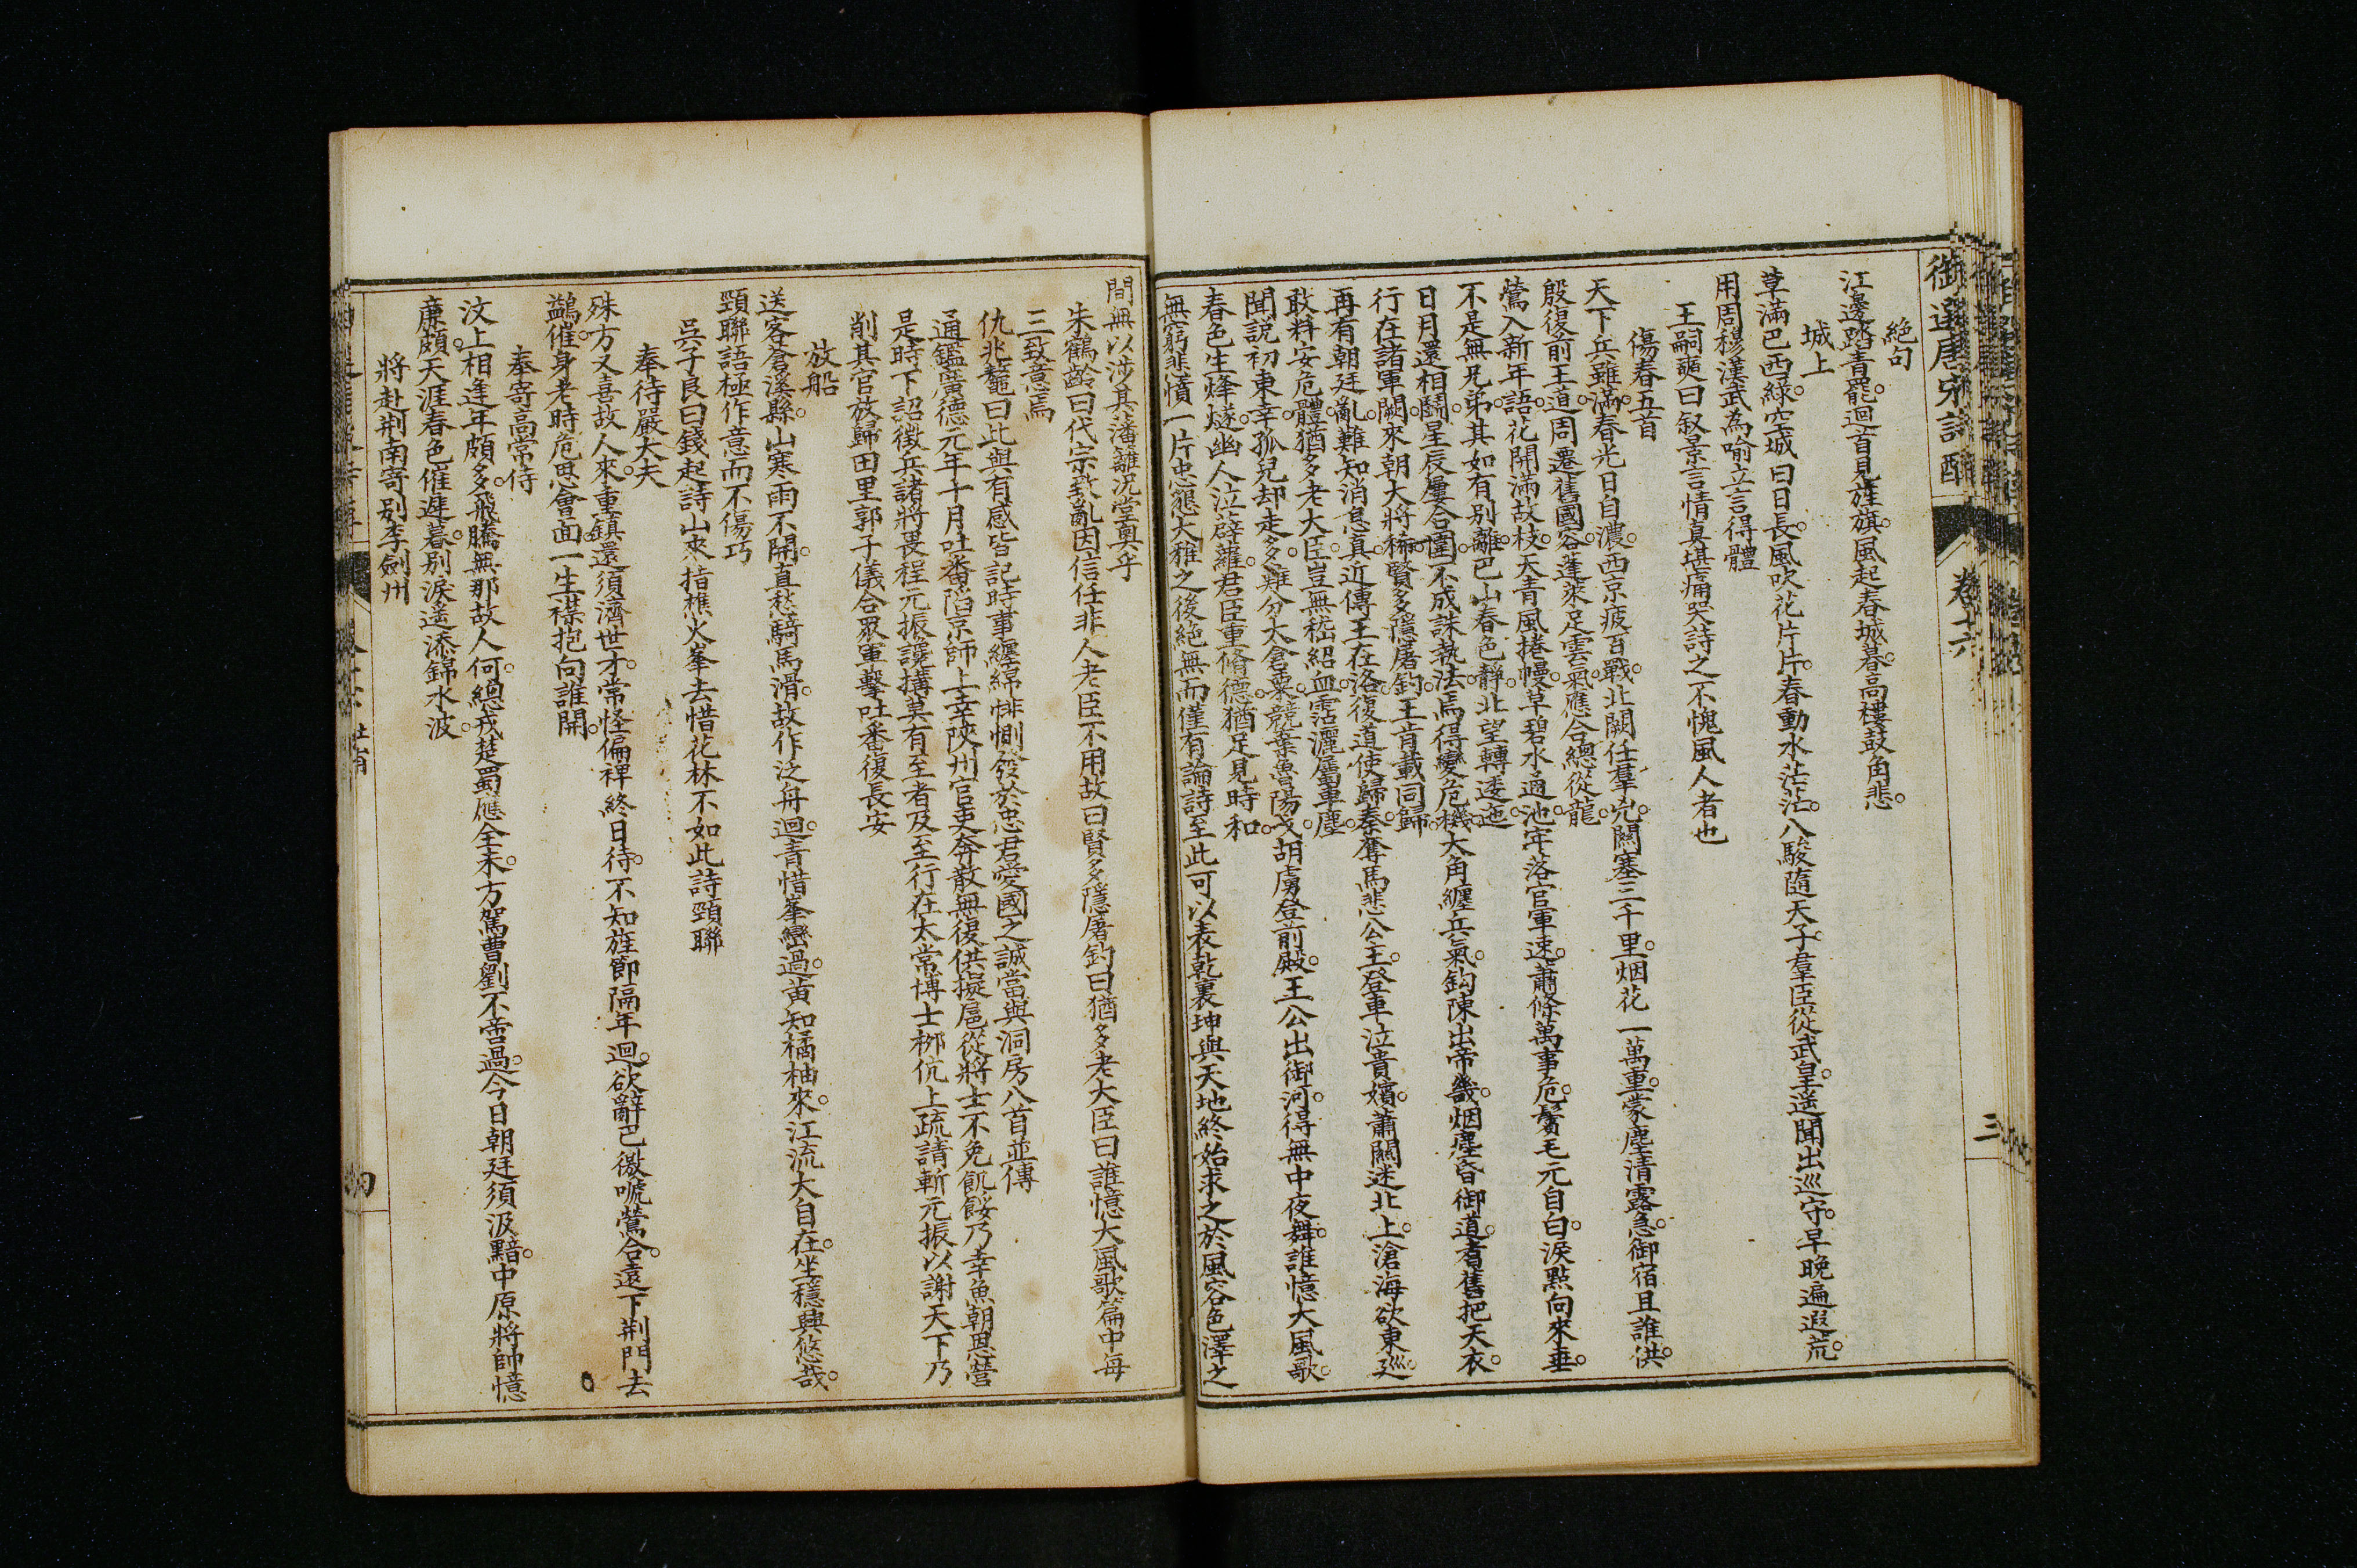 御選唐宋詩醇 卷十六 三
絶句
江邊踏青罷。迴首見旌旗。風起春城暮。高樓鼓角悲。
城上
草滿巴西綠。空城白日長。風吹花片片。春動水茫茫。八駿隨天子。羣臣從武皇。遥聞出巡守。早晚遍遐荒。
用周穆漢武為喻立言得體
王嗣奭曰叙景言情真堪痛哭詩之不愧風人者也
傷春五首
天下兵雖滿。春光日自濃。西京疲百戰。北闕任羣兇。關塞三千里。烟花一萬重。蒙塵清露急。御宿且誰供。
殷復前王道。周遷舊國容。蓬萊足雲氣。應合總從龍。
鶯入新年語。花開滿故枝。天青風捲幔。草碧水通池。牢落官軍速。蕭條萬事危。鬢毛元自白。淚點向來垂。
不是無兄弟。其如有别離。巴山春色靜。北望轉逶迤。
日月還相鬭。星辰屢合圍。不成誅執法。焉得變危機。大角纏兵氣。鈎陳出帝畿。烟塵昏御道。耆舊把天衣。
行在諸軍闕。來朝大將稀。賢多隱屠釣。王肯載同歸。
再有朝廷亂。難知消息真。近傳王在洛。復道使歸秦。奪馬悲公主。登車泣貴嬪。蕭關迷北上。滄海欲東廵。
敢料安危體。猶多老大臣。豈無嵇紹血。霑灑屬車塵。
聞說初東幸。孤兒却走多。難分太倉粟。競棄魯陽戈。胡虜登前殿。王公出御河。得無中夜舞。誰憶大風歌。
春色生烽燧。幽人泣薜蘿。君臣重脩德。猶足見時和。
無窮悲憤一片忠懇大雅之後絶無而僅有論詩至此可以表乾裏坤與天地終始求之於風容色澤之
間無以涉其藩籬况堂奧乎
朱鶴齡曰代宗致亂因信任非人老臣不用故曰賢多隱屠釣曰猶多老大臣曰誰憶大風歌篇中每
三致意焉
仇兆鼇曰此與有感皆記時事纏綿悱惻發於忠君愛國之誠當與洞房八首並傳
通鑑廣德元年十月吐番陷京師上幸陝州官吏奔散無復供擬扈從將士不免飢餒乃幸魚朝恩營
是時下詔徵兵諸將畏程元振讒搆莫有至者及至行在太常博士柳伉上疏請斬元振以謝天下乃
削其官放歸田里郭子儀合眾軍擊吐番復長安
放船
送客蒼溪縣。山寒雨不開。直愁騎馬滑。故作泛舟迴。青惜峯巒過。黄知橘柚來。江流大自在。坐穩興悠哉。
頸聯語極作意而不傷巧
吳子良曰錢起詩山來指樵火峯去惜花林不如此詩頸聯
奉待嚴大夫
殊方又喜故人來。重鎮還須濟世才。常怪偏裨終日待。不知旌節隔年迴。欲辭巴徼嗁鶯合。遠下荆門去
鷁催。身老時危思會面。一生襟抱向誰開。
奉寄高常侍
汶上相逢年頗多。飛騰無那故人何。總戎楚蜀應全未。方駕曹劉不啻過。今日朝廷須汲黯。中原將帥憶
廉頗。天涯春色催遲暮。别淚遥添錦水波。
將赴荆南寄别李劍州